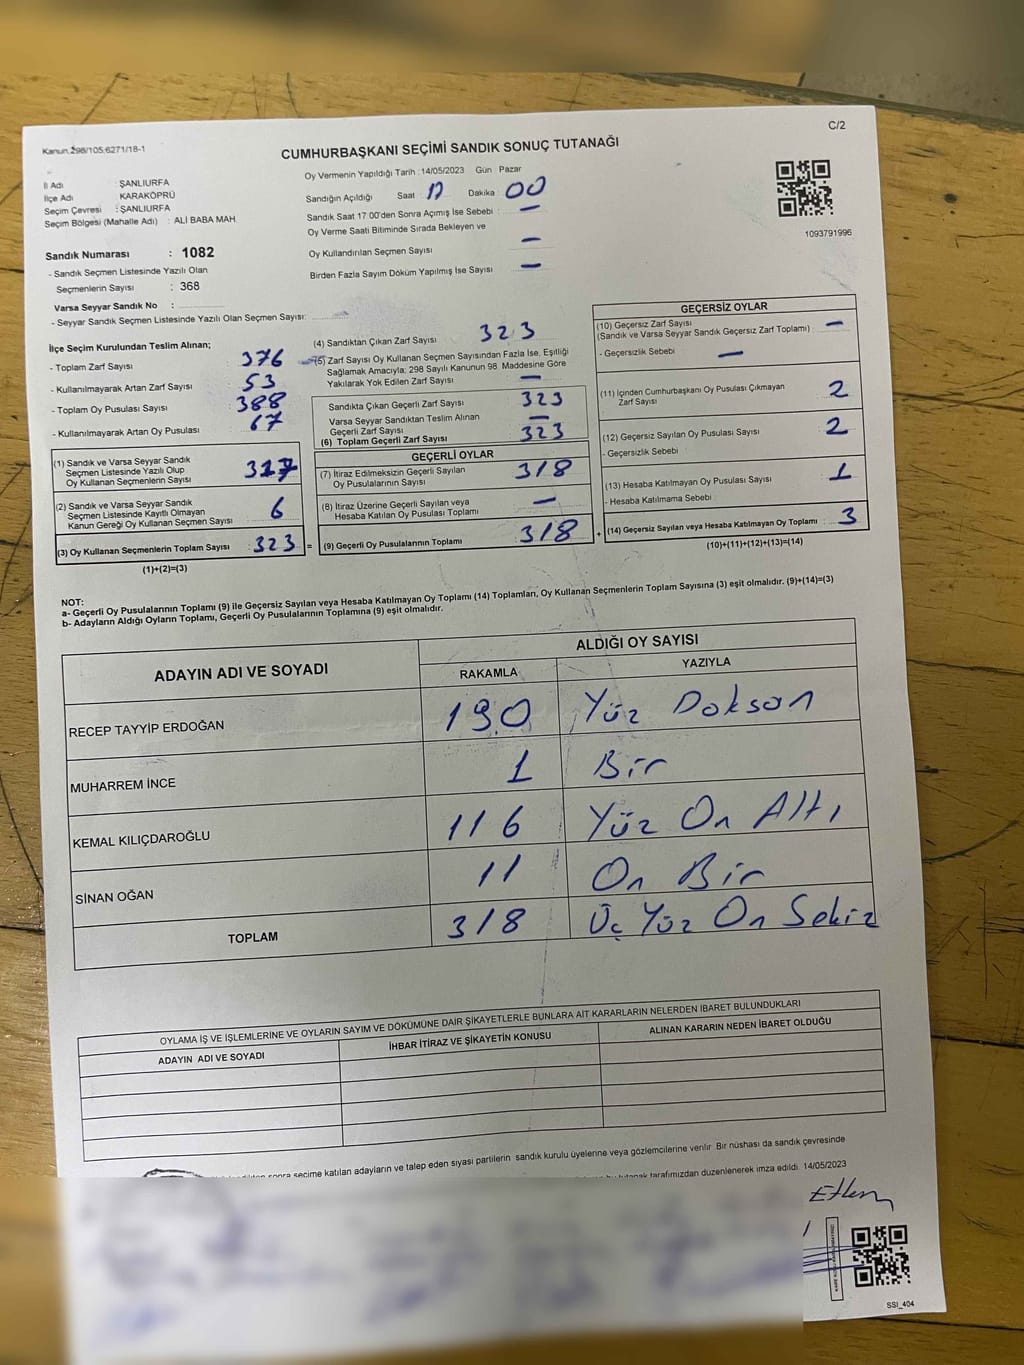 Kanun.298/105;6271/18-1
C/2
CUMHURBAŞKANI SEÇİMİ SANDIK SONUÇ TUTANAĞI
İl Adı : ŞANLIURFA
İlçe Adı KARAKÖPRÜ
Seçim Çevresi : ŞANLIURFA
Seçim Bölgesi (Mahalle Adı) : ALİ BABA MAH.
Sandık Numarası : 1082
- Sandık Seçmen Listesinde Yazılı Olan
Seçmenlerin Sayısı : 368
Varsa Seyyar Sandık No :
- Seyyar Sandık Seçmen Listesinde Yazılı Olan Seçmen Sayısı:
Oy Vermenin Yapıldığı Tarih : 14/05/2023 Gün Pazar
Sandığın Açıldığı Saat 17 Dakika 00
Sandık Saat 17:00'den Sonra Açımış İse Sebebi : -
Oy Verme Saati Bitiminde Sırada Bekleyen ve
Oy Kullandırılan Seçmen Sayısı -
Birden Fazla Sayım Döküm Yapılmış İse Sayısı -
1093791996
İlçe Seçim Kurulundan Teslim Alınan;
- Toplam Zarf Sayısı 376
- Kullanılmayarak Artan Zarf Sayısı 53
- Toplam Oy Pusulası Sayısı 388
- Kullanılmayarak Artan Oy Pusulası 67
(1) Sandık ve Varsa Seyyar Sandık
Seçmen Listesinde Yazılı Olup
Oy Kullanan Seçmenlerin Sayısı 317
(2) Sandık ve Varsa Seyyar Sandık
Seçmen Listesinde Kayıtlı Olmayan
Kanun Gereği Oy Kullanan Seçmen Sayısı 6
(3) Oy Kullanan Seçmenlerin Toplam Sayısı : 323 =
(1)+(2)=(3)
(4) Sandıktan Çıkan Zarf Sayısı 323
(5) Zarf Sayısı Oy Kullanan Seçmen Sayısından Fazla İse, Eşitliği
Sağlamak Amacıyla; 298 Sayılı Kanunun 98. Maddesine Göre
Yakılarak Yok Edilen Zarf Sayısı -
Sandıkta Çıkan Geçerli Zarf Sayısı 323
Varsa Seyyar Sandıktan Teslim Alınan
Geçerli Zarf Sayısı -
(6) Toplam Geçerli Zarf Sayısı 323
GEÇERLİ OYLAR
(7) İtiraz Edilmeksizin Geçerli Sayılan
Oy Pusulalarının Sayısı 318
(8) İtiraz Üzerine Geçerli Sayılan veya
Hesaba Katılan Oy Pusulası Toplamı -
(9) Geçerli Oy Pusulalarının Toplamı 318 +
GEÇERSİZ OYLAR
(10) Geçersiz Zarf Sayısı
(Sandık ve Varsa Seyyar Sandık Geçersiz Zarf Toplamı) -
- Geçersizlik Sebebi -
(11) İçinden Cumhurbaşkanı Oy Pusulası Çıkmayan
Zarf Sayısı 2
(12) Geçersiz Sayılan Oy Pusulası Sayısı 2
- Geçersizlik Sebebi :
(13) Hesaba Katılmayan Oy Pusulası Sayısı 1
- Hesaba Katılmama Sebebi
(14) Geçersiz Sayılan veya Hesaba Katılmayan Oy Toplamı : 3
(10)+(11)+(12)+(13)=(14)
NOT:
a- Geçerli Oy Pusulalarının Toplamı (9) ile Geçersiz Sayılan veya Hesaba Katılmayan Oy Toplamı (14) Toplamları, Oy Kullanan Seçmenlerin Toplam Sayısına (3) eşit olmalıdır. (9)+(14)=(3)
b- Adayların Aldığı Oyların Toplamı, Geçerli Oy Pusulalarının Toplamına (9) eşit olmalıdır.
ADAYIN ADI VE SOYADI
ALDIĞI OY SAYISI
RAKAMLA YAZIYLA
RECEP TAYYİP ERDOĞAN 190 Yüz Doksan
MUHARREM İNCE 1 Bir
KEMAL KILIÇDAROĞLU 116 Yüz On Altı
SİNAN OĞAN 11 On Bir
TOPLAM 318 Üç Yüz On Sekiz
OYLAMA İŞ VE İŞLEMLERİNE VE OYLARIN SAYIM VE DÖKÜMÜNE DAİR ŞİKAYETLERLE BUNLARA AİT KARARLARIN NELERDEN İBARET BULUNDUKLARI
ADAYIN ADI VE SOYADI
İHBAR İTİRAZ VE ŞİKAYETİN KONUSU
ALINAN KARARIN NEDEN İBARET OLDUĞU
sonra seçime katılan adayların ve talep eden siyasi partilerin sandık kurulu üyelerine veya gözlemcilerine verilir. Bir nüshası da sandık çevresinde
tutanak tarafımızdan düzenlenerek imza edildi. 14/05/2023
SSI_404